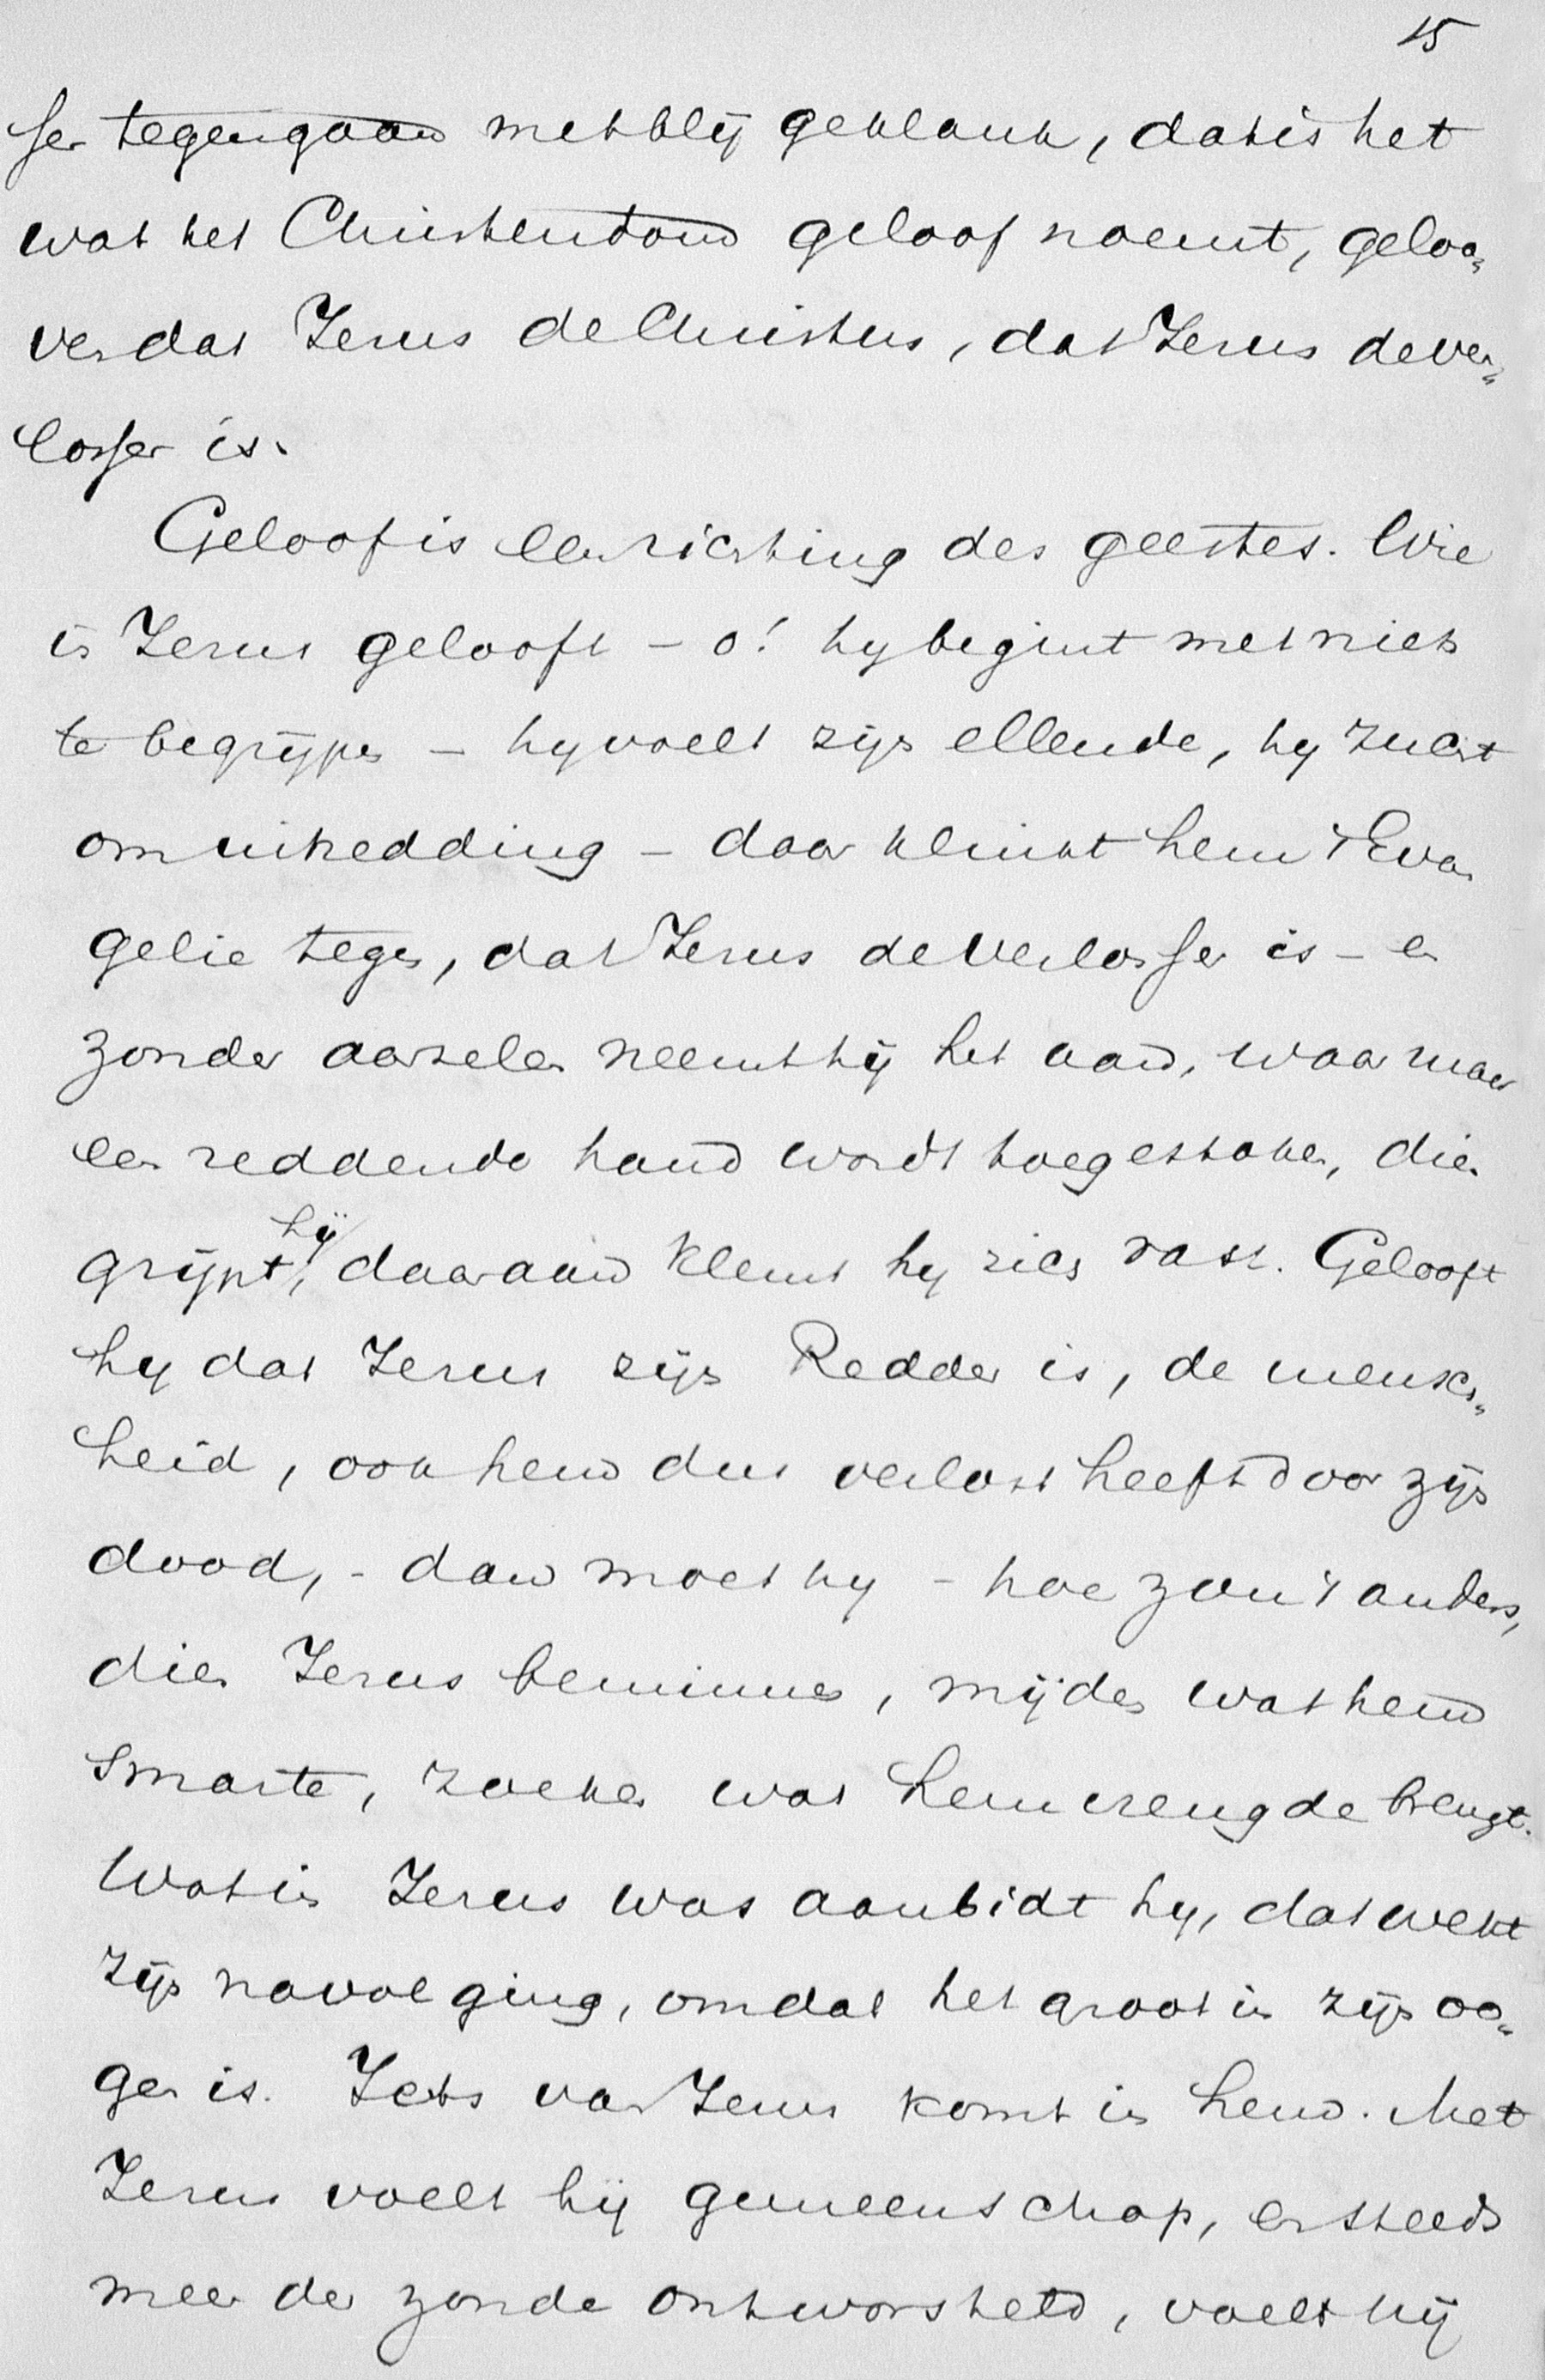 15
ser tegengaan met blij geklank, dat is het
wat het Christendom geloof noemt, geloo„
ven dat Jezus de Christus, dat Jezus de ver„
losser is.
Geloof is een richting des geestes. Wie
in Jezus gelooft – o! hy begint met niets
te begrijpen – hy voelt zijn ellende, hy zucht
om uitredding – daar klinkt hem 't Evan
gelie tegen, dat Jezus de Verlosser is – en
zonder aarzelen neemt hij het aan, waar maar
een reddende hand wordt toegestoken, dien
grijpt hij, daaraan klemt hy zich vast. Gelooft
hy dat Jezus zijn Redder is, de mensch„
heid, ook hem dus verlost heeft door zijn
dood, - dan moet hy - hoe zou 't anders,
dien Jezus beminnen, mijden wat hem
smarte, zoeken wat hem vreugde brengt.
Wat in Jezus was aanbidt hy, dat wekt
zijn navolging, omdat het groot in zijn oo„
gen is. Iets van Jezus komt in hem. Met
Jezus voelt hij gemeenschap, en steeds
meer der zonde ontworsteld, voelt hij